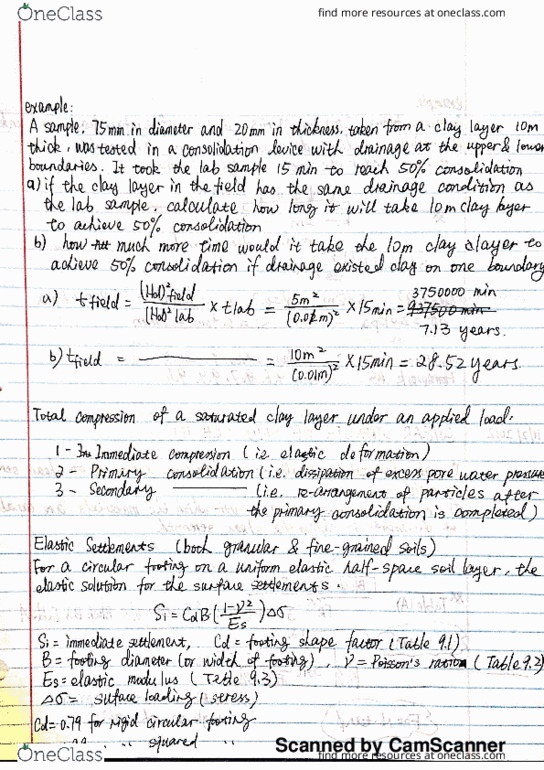 OneClass
find more resources at oneclass.com
example:
A sample, 75mm in diameter and 20mm in thickness, taken from a clay layer 10m
thick, was tested in a consolidation device with drainage at the upper & lower
boundaries. It took the lab sample 15 min to reach 50% consolidation
a) if the clay layer in the field has the same drainage condition as
the lab sample, calculate how long it will take 10m clay layer
to achieve 50% consolidation
b) how much more time would it take the 10m clay layer to
achieve 50% consolidation if drainage existed on one boundary
a) t field = (Hd)² field / (Hd)² lab × t lab = 5m² / (0.01m)² × 15min = 3750000 min
937500 min
7.13 years.
b) t field = ——— = 10m² / (0.01m)² × 15min = 28.52 years.
Total compression of a saturated clay layer under an applied load.
1 - Immediate compression (i.e elastic deformation)
2 - Primary consolidation (i.e. dissipation of excess pore water pressure
3 - Secondary ——— (i.e. re-arrangement of particles after
the primary consolidation is completed)
Elastic Settlements (both granular & fine-grained soils)
For a circular footing on a uniform elastic half-space soil layer, the
elastic solution for the surface settlements.
Si = CdB(1-ν²/Es)Δσ
Si = immediate settlement, Cd = footing shape factor (Table 9.1)
B = footing diameter (or width of footing), ν = Poisson's ration (Table 9.2)
Es = elastic modulus (Table 9.3)
Δσ = suface loading (stress)
Cd = 0.79 for rigid circular footing
" squared "
Scanned by CamScanner
OneClass
find more resources at oneclass.com